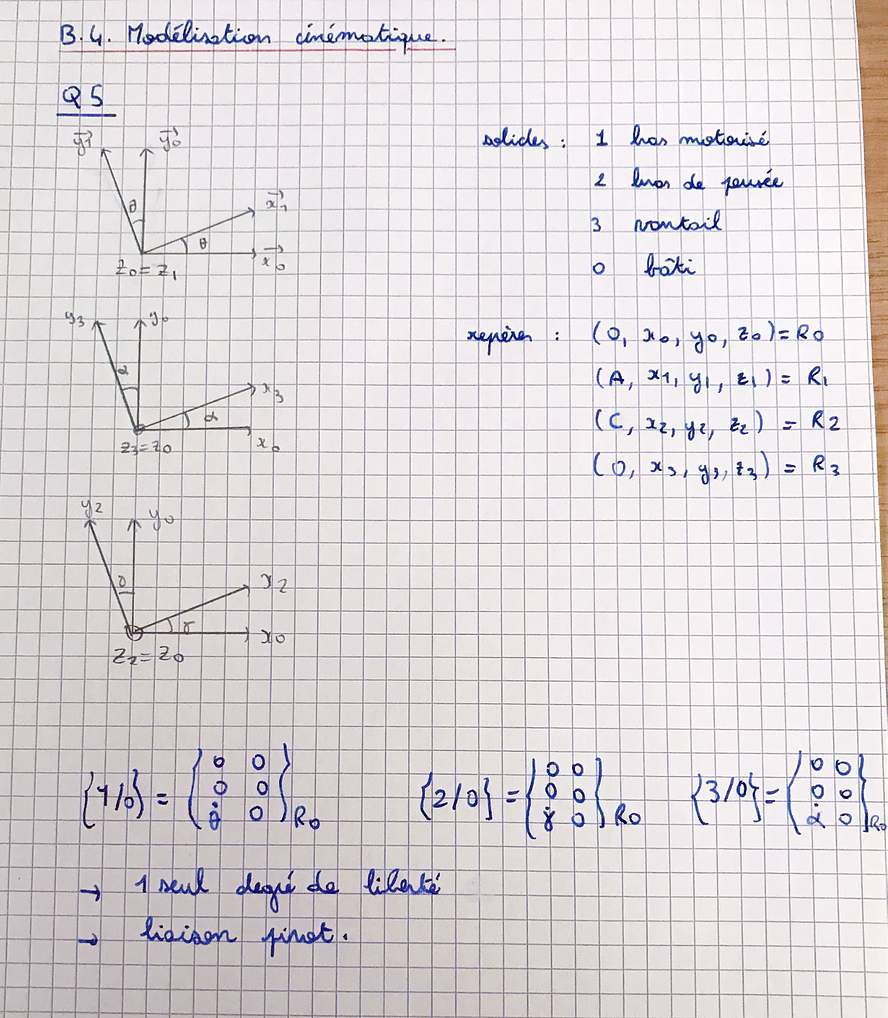 B.4. Modélisation cinématique.
Q5
y1 y0
θ x1
θ x0
z0 = z1
solides : 1 bras motorisé
2 bras de poussée
3 vantail
0 bâti
y3 y0
α x3
α x0
z3 = z0
repères : (O, x0, y0, z0) = R0
(A, x1, y1, z1) = R1
(C, x2, y2, z2) = R2
(O, x3, y3, z3) = R3
y2 y0
γ x2
γ x0
z2 = z0
{1/0} = { 0 0
0 0
θ̇ 0 } R0
{2/0} = { 0 0
0 0
γ̇ 0 } R0
{3/0} = { 0 0
0 0
α̇ 0 } R0
→ 1 seul degré de liberté
→ liaison pivot.